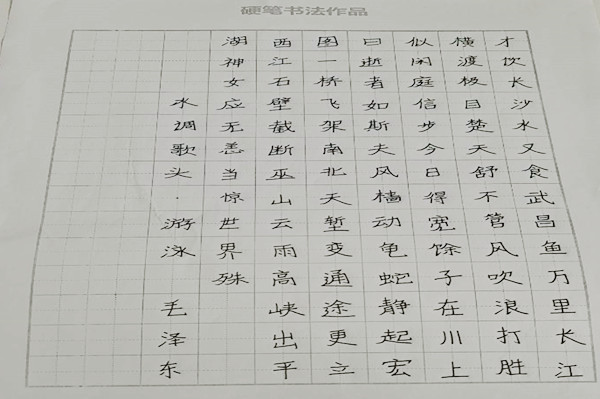 硬笔书法作品
才饮长沙水又食武昌鱼万里长江
横渡极目楚天舒不管风吹浪打胜
似闲庭信步今日得宽馀子在川上
曰逝者如斯夫风樯动龟蛇静起宏
图一桥飞架南北天堑变通途更立
西江石壁截断巫山云雨高峡出平
湖神女应无恙当惊世界殊
水调歌头·游泳 毛泽东